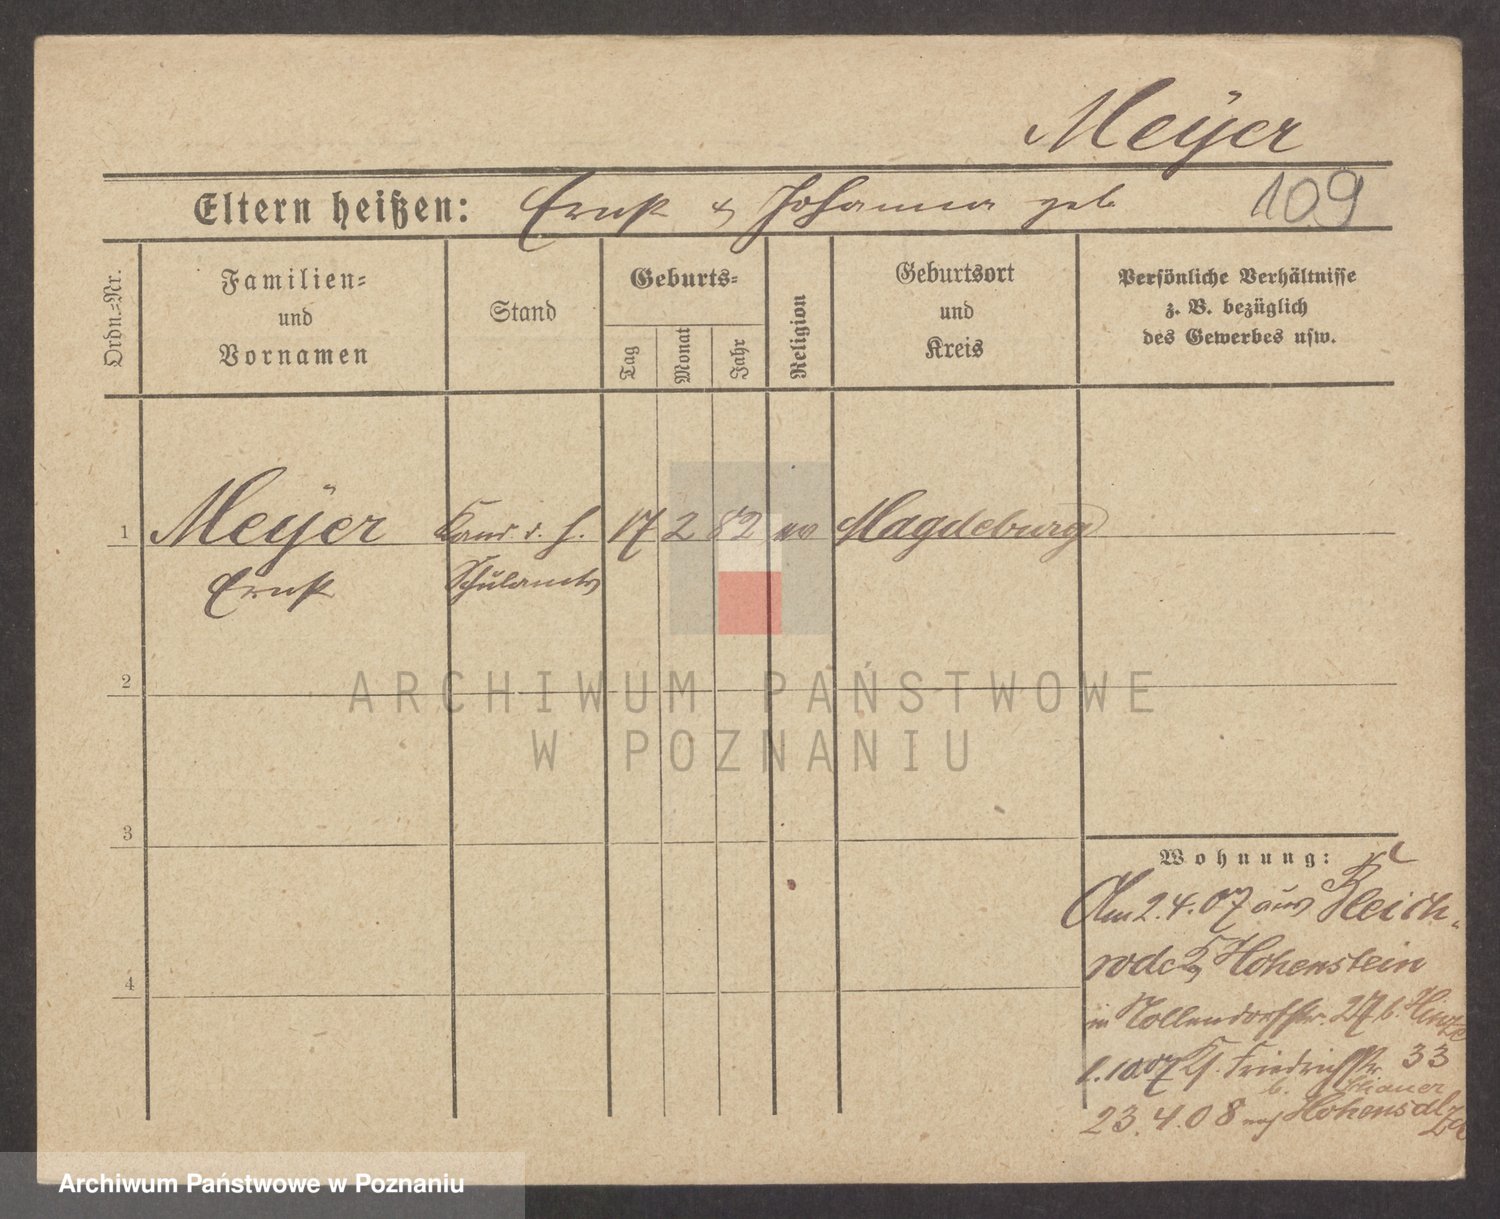 Meÿer
Eltern heißen: Ernst & Johanna geb
109
Ordn.=Nr.
Familien=
und
Vornamen
Stand
Geburts=
Tag
Monat
Jahr
Religion
Geburtsort
und
Kreis
Persönliche Verhältnisse
z. B. bezüglich
des Gewerbes usw.
1
Meÿer
Ernst
Cand d. h.
Schulamts
17
2
82
ev
Magdeburg
2
3
4
Wohnung:
Am 2.4.07 aus
Hohenstein
in Nollendorfstr. 27 b. Hinze
1.10.07 Friedrichstr 33
b.
23.4.08 nach Hohensalza
ARCHIWUM PAŃSTWOWE
W POZNANIU
Archiwum Państwowe w Poznaniu